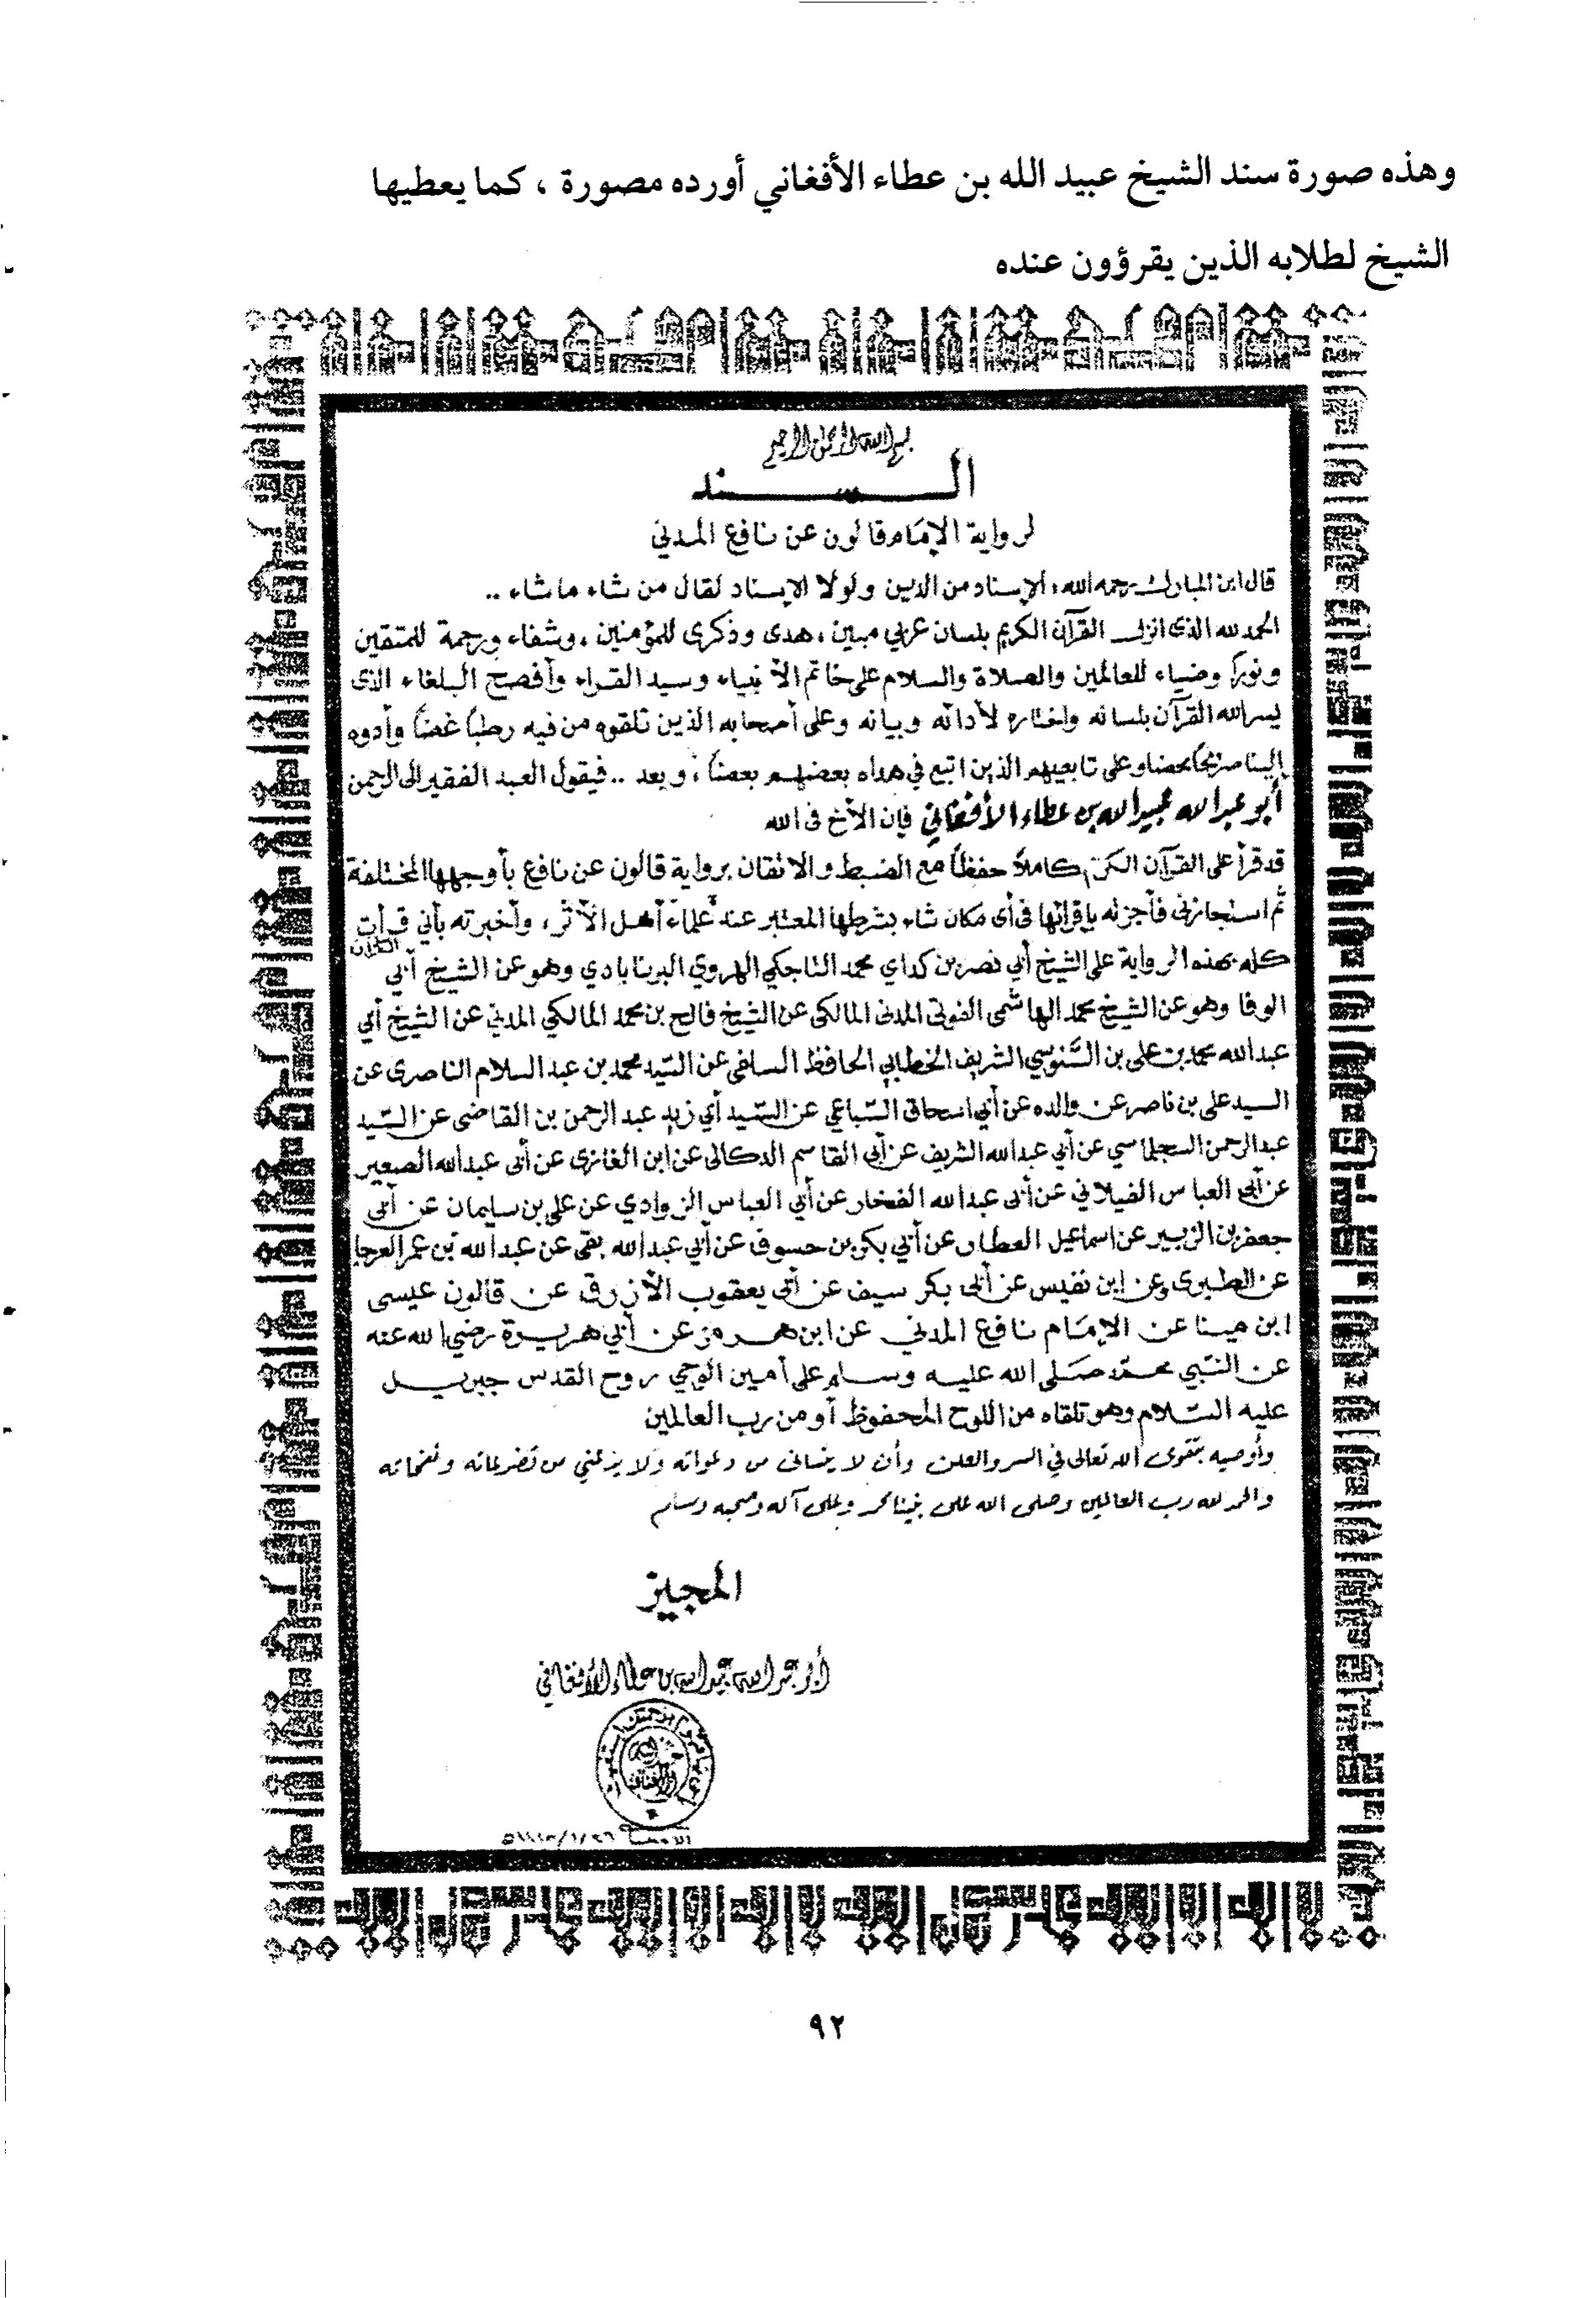 وهذه صورة سند الشيخ عبيد الله بن عطاء الأفغاني أورده مصورة ، كما يعطيها
الشيخ لطلابه الذين يقرؤون عنده
بسم الله الرحمن الرحيم
السند
لرواية الإمام قالون عن نافع المدني
قال ابن المبارك رحمه الله: الإسناد من الدين ولولا الإسناد لقال من شاء ما شاء ..
الحمد لله الذى انزل القرآن الكريم بلسان عربي مبين ، هدى وذكرى للمؤمنين ، وشفاء ورحمة للمتقين
ونوراً وضياء للعالمين والصلاة والسلام على خاتم الأنبياء وسيد القراء وأفصح البلغاء الذى
يسر الله القرآن بلسانه واختاره لأدائه وبيانه وعلى أصحابه الذين تلقوه من فيه رطباً غضاً وأدوه
إلينا صريحاً محضاً وعلى تابعيهم الذين اتبع في هداه بعضهم بعضاً ، وبعد .. فيقول العبد الفقير إلى الرحمن
أبو عبد الله عبيد الله بن عطاء الأفغاني فإن الأخ فى الله
قد قرأ على القرآن الكريم كاملاً حفظاً مع الضبط والاتقان برواية قالون عن نافع بأوجهها المختلفة
ثم استجازنى فأجزته بإقرائها فى أى مكان شاء بشرطها المعتبر عند علماء أهل الأثر ، وأخبرته بأني قرأت القرآن
كله بهذه الرواية على الشيخ أبي نصر بن كداي محمد التاجكي الهروي البرنابادي وهو عن الشيخ أبي
الوفا وهو عن الشيخ محمد الهاشمى الفوتى المدنى المالكى عن الشيخ فالح بن محمد المالكي المدني عن الشيخ أبي
عبد الله محمد بن على بن السنوسي الشريف الخطابي الحافظ السلفى عن السيد محمد بن عبد السلام الناصرى عن
السيد على بن ناصر عن والده عن أبي اسحاق السباعي عن السيد أبي زيد عبد الرحمن بن القاضى عن السيد
عبد الرحمن السجلماسي عن أبي عبد الله الشريف عن أبي القاسم الدكالى عن ابن الغازى عن أبى عبد الله الصغير
عن أبى العباس الفيلاني عن أبى عبد الله الفخار عن أبي العباس الزواوي عن على بن سليمان عن أبى
جعفر بن الزبير عن اسماعيل العطار عن أبي بكر بن حسوف عن أبي عبد الله بقى عن عبد الله بن عمر العرجا
عن الطبرى وعن ابن نفيس عن أبى بكر سيف عن أبى يعقوب الأزرق عن قالون عيسى
ابن مينا عن الإمام نافع المدني عن ابن هرمز عن أبي هريرة رضي الله عنه
عن النبي محمد صلى الله عليه وسلم على أمين الوحي روح القدس جبريل
عليه السلام وهو تلقاه من اللوح المحفوظ أو من رب العالمين
وأوصيه بتقوى الله تعالى في السر والعلن وأن لا ينسانى من دعواته ولا من تضرعاته ونفحاته
والحمد لله رب العالمين وصلى الله على نبينا محمد وعلى آله وصحبه وسلم
المجيز
أبو عبد الله عبيد الله بن عطاء الأفغاني
٩٢